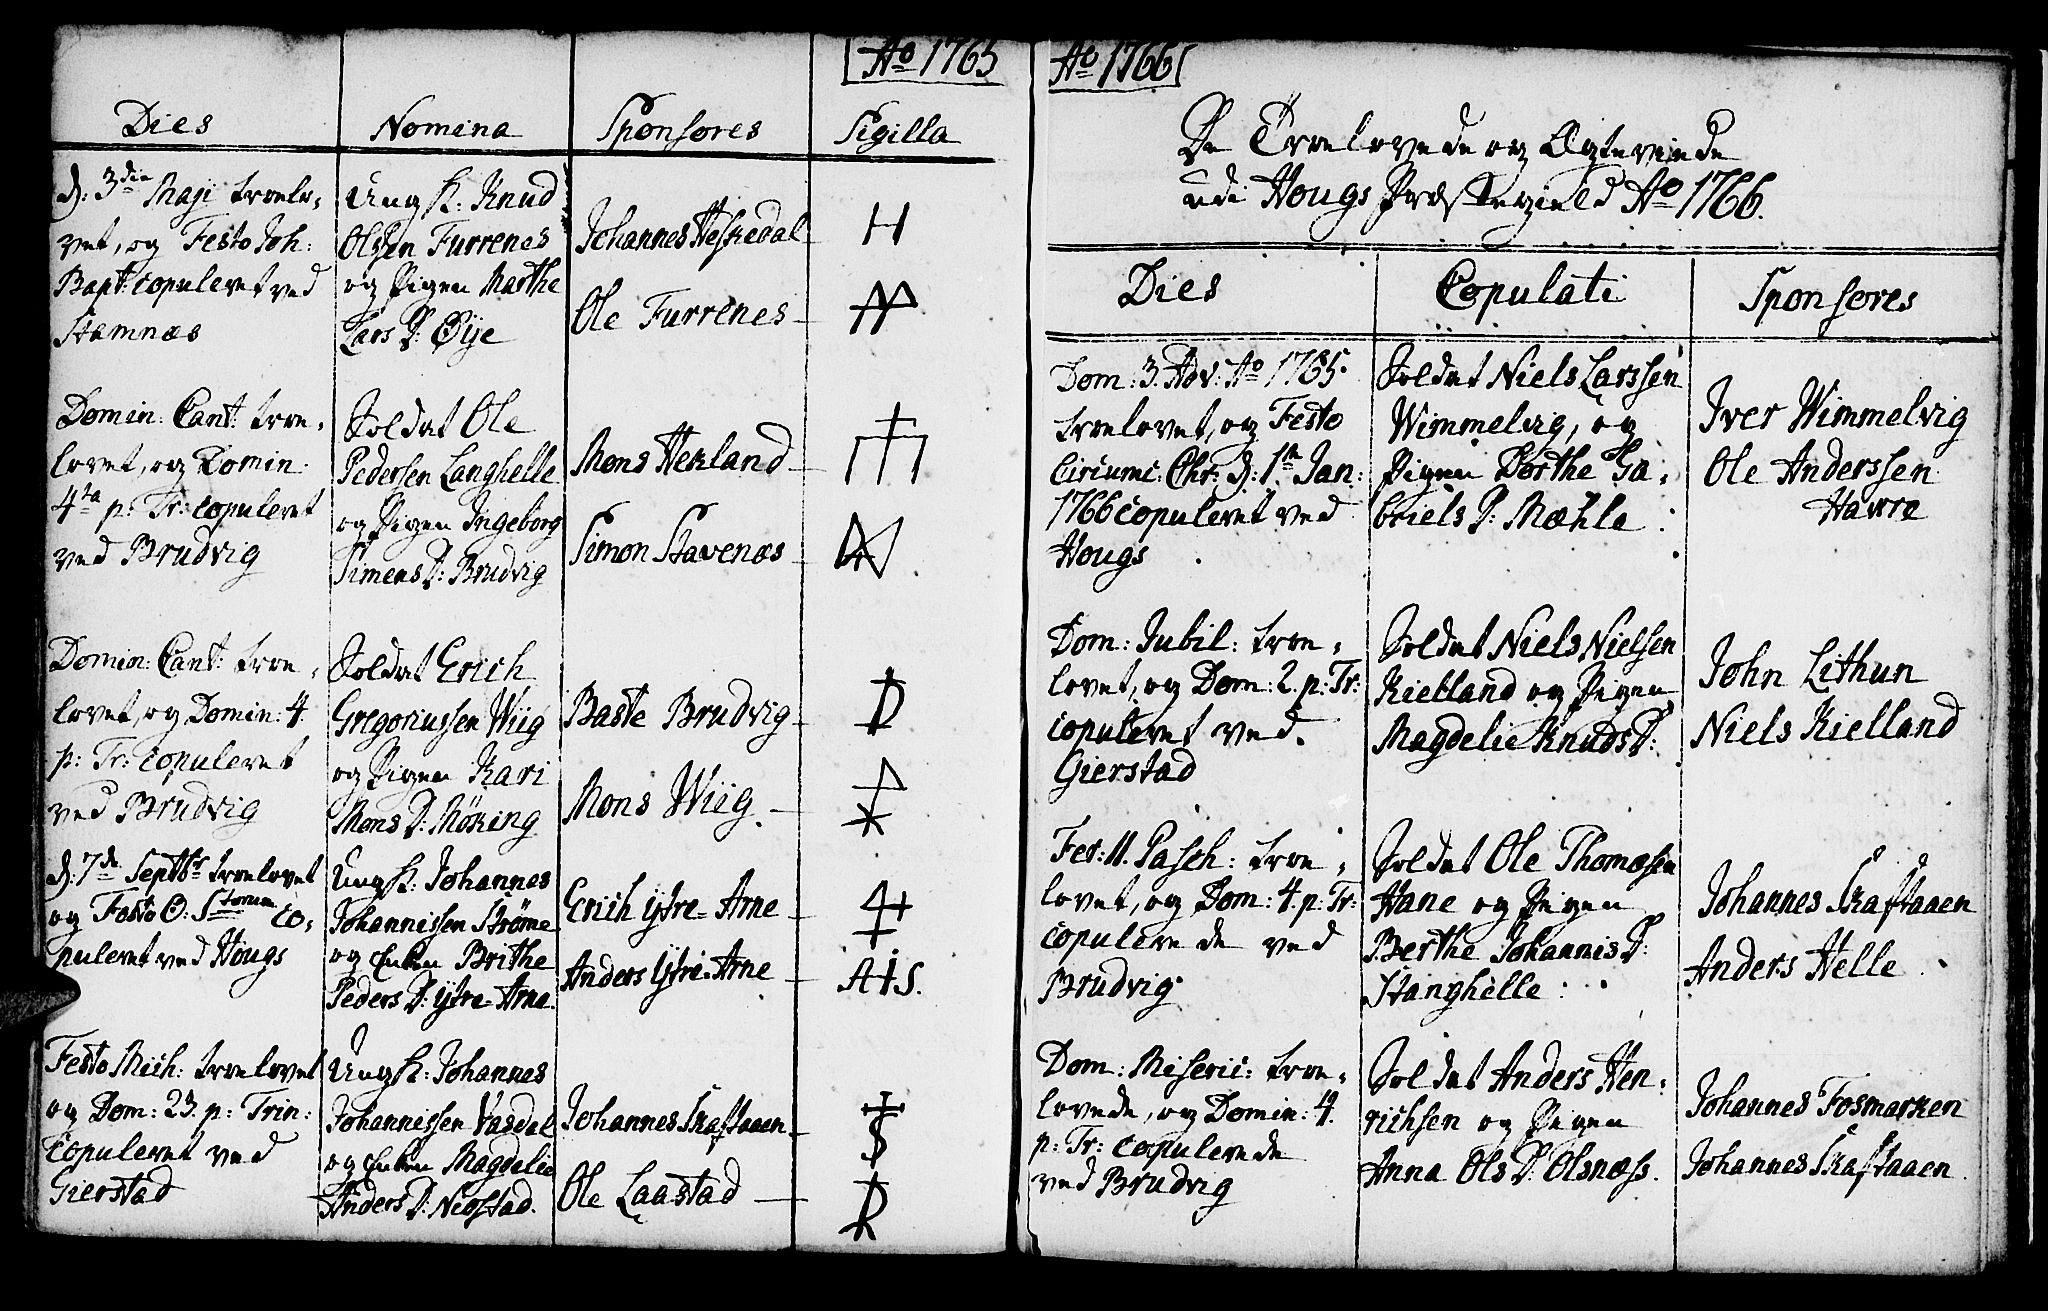 Ao 1765
Dies Nomina Sponsores Sigilla
d: 3die Maji troelo-
vet, og Festo Joh:
Bapt: copuleret ved
Stamnæs
Ung K: Knud
Olsen Furrenes
og Pigen Marthe
Lars D: Øije
Johannes Heskedal
Ole Furrenes
H
Domin: Cant: troe-
lovet, og Domin:
4ta p: Tr: copuleret
ved Brudvig
Soldat Ole
Pedersen Langhelle
og Pigen Ingeborg
Simens D: Brudvig
Mons Hekland
Simon Stavenæs
Domin: Cant: troe-
lovet, og Domin: 4.
p: Tr: copuleret
ved Brudvig
Soldat Erich
Gregoriussen Wiig
og Pigen Kari
Mons D: Möking
Baste Brudvig
Mons Wiig
d: 7de Septbr troelovet
og Festo O. Storum co-
puleret ved Hougs
Ung K: Johannes
Johannissen Ströme
og Enken Brithe
Peders D: ijtre-Arne
Erich ijtre-Arne
Anders ijtre-Arne
A S.
Festo Mich: troelovet
og Dom: 23. p: Trin:
copuleret ved
Gierstad
Ung K: Johannes
Johannissen Vasdal
og Enken Magdelie
Anders D: Neostad.
Johannes Skaftaaen
Ole Laastad
Ao 1766
De Troelovede og Ægteviede
udi Hougs Præstegield Ao 1766.
Dies Copulati Sponsores
Dom: 3. Adv: Ao 1765.
troelovet, og Festo
Circumc: Chr: d: 1ste Jan:
1766 copuleret ved
Hougs
Soldat Niels Larssen
Wimmelvig, og
Pigen Dorthe Ga-
briels D: Mæhle
Iver Wimmelvig
Ole Anderssen
Havre
Dom: Jubil: troe-
lovet, og Dom: 2. p: Tr:
copuleret ved
Gierstad
Soldat Niels Nielsen
Kielland og Pigen
Magdelie Knuds D:
John Lithun
Niels Kielland
Fer: II. Pasch: troe-
lovet, og Dom: 4. p: Tr:
copulerede ved
Brudvig
Soldat Ole Thomæsen
Hane og Pigen
Berthe Johannis D:
Stanghelle
Johannes Skaftaaen
Anders Helle
Dom: Miseric: troe-
lovede, og Domin: 4.
p: Tr: copulerede
ved Brudvig
Soldat Anders Hen-
richsen og Pigen
Anna Ols D: Olsnæss.
Johannes Fosmarken
Johannes Skaftaaen